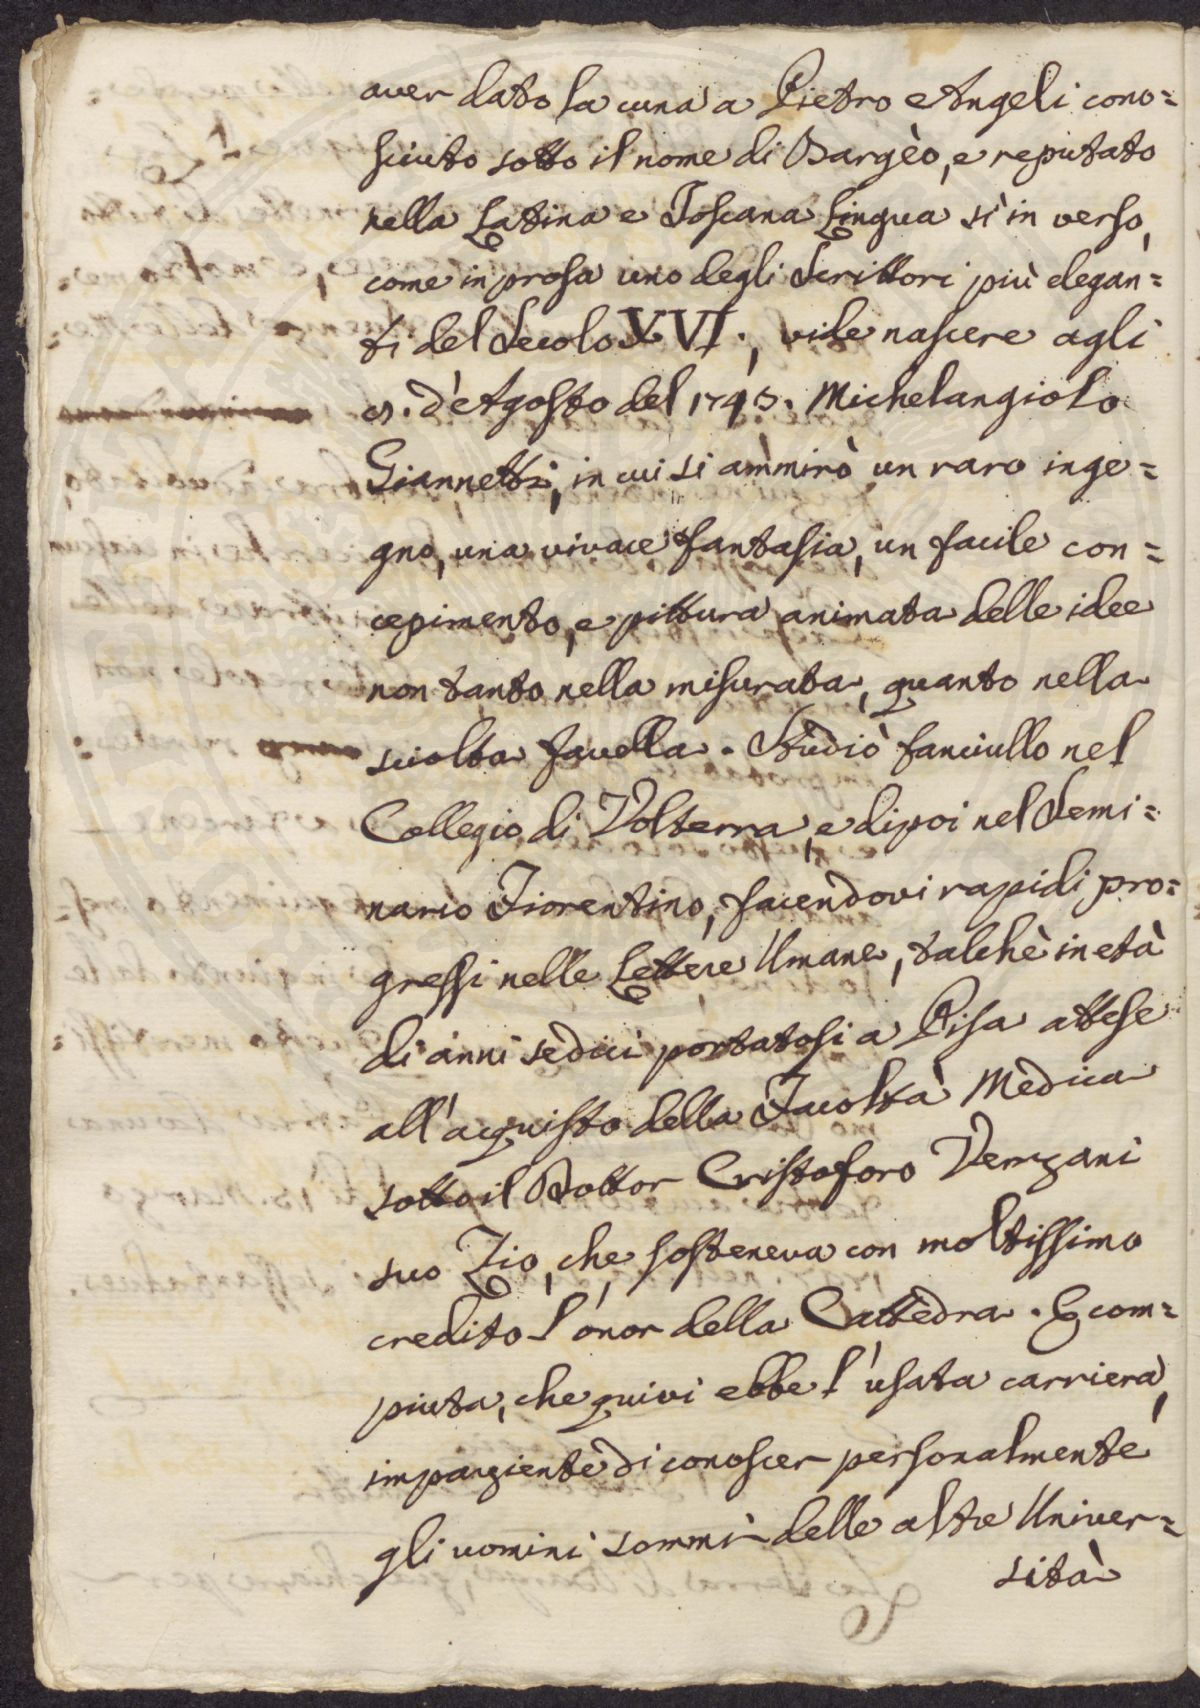 aver dato la cuna a Pietro Angeli cono=
sciuto sotto il nome di Bargèo, e reputato
nella Latina e Toscana Lingua sì in verso,
come in prosa uno degli Scrittori più elegan=
ti del Secolo XVI., vide nascere agli
d'Agosto del 1743. Michelangiolo
Giannetti, in cui si ammirò un raro inge=
gno, una vivace fantasia, un facile con=
cepimento, e pittura animata delle idee
non tanto nella misurata, quanto nella
sciolta favella. Studiò fanciullo nel
Collegio di Volterra, e dipoi nel Semi=
nario Fiorentino, facendovi rapidi pro=
gressi nelle Lettere Umane, talchè in età
di anni sedici portatosi a Pisa attese
all'acquisto della Facoltà Medica
sotto il Dottor Cristoforo Verzani
suo Zio, che sosteneva con moltissimo
credito l'onor della Cattedra. E com=
piuta, che quivi ebbe l'usata carriera,
impaziente di conoscer personalmente
gli uomini sommi delle altre Univer=
sità